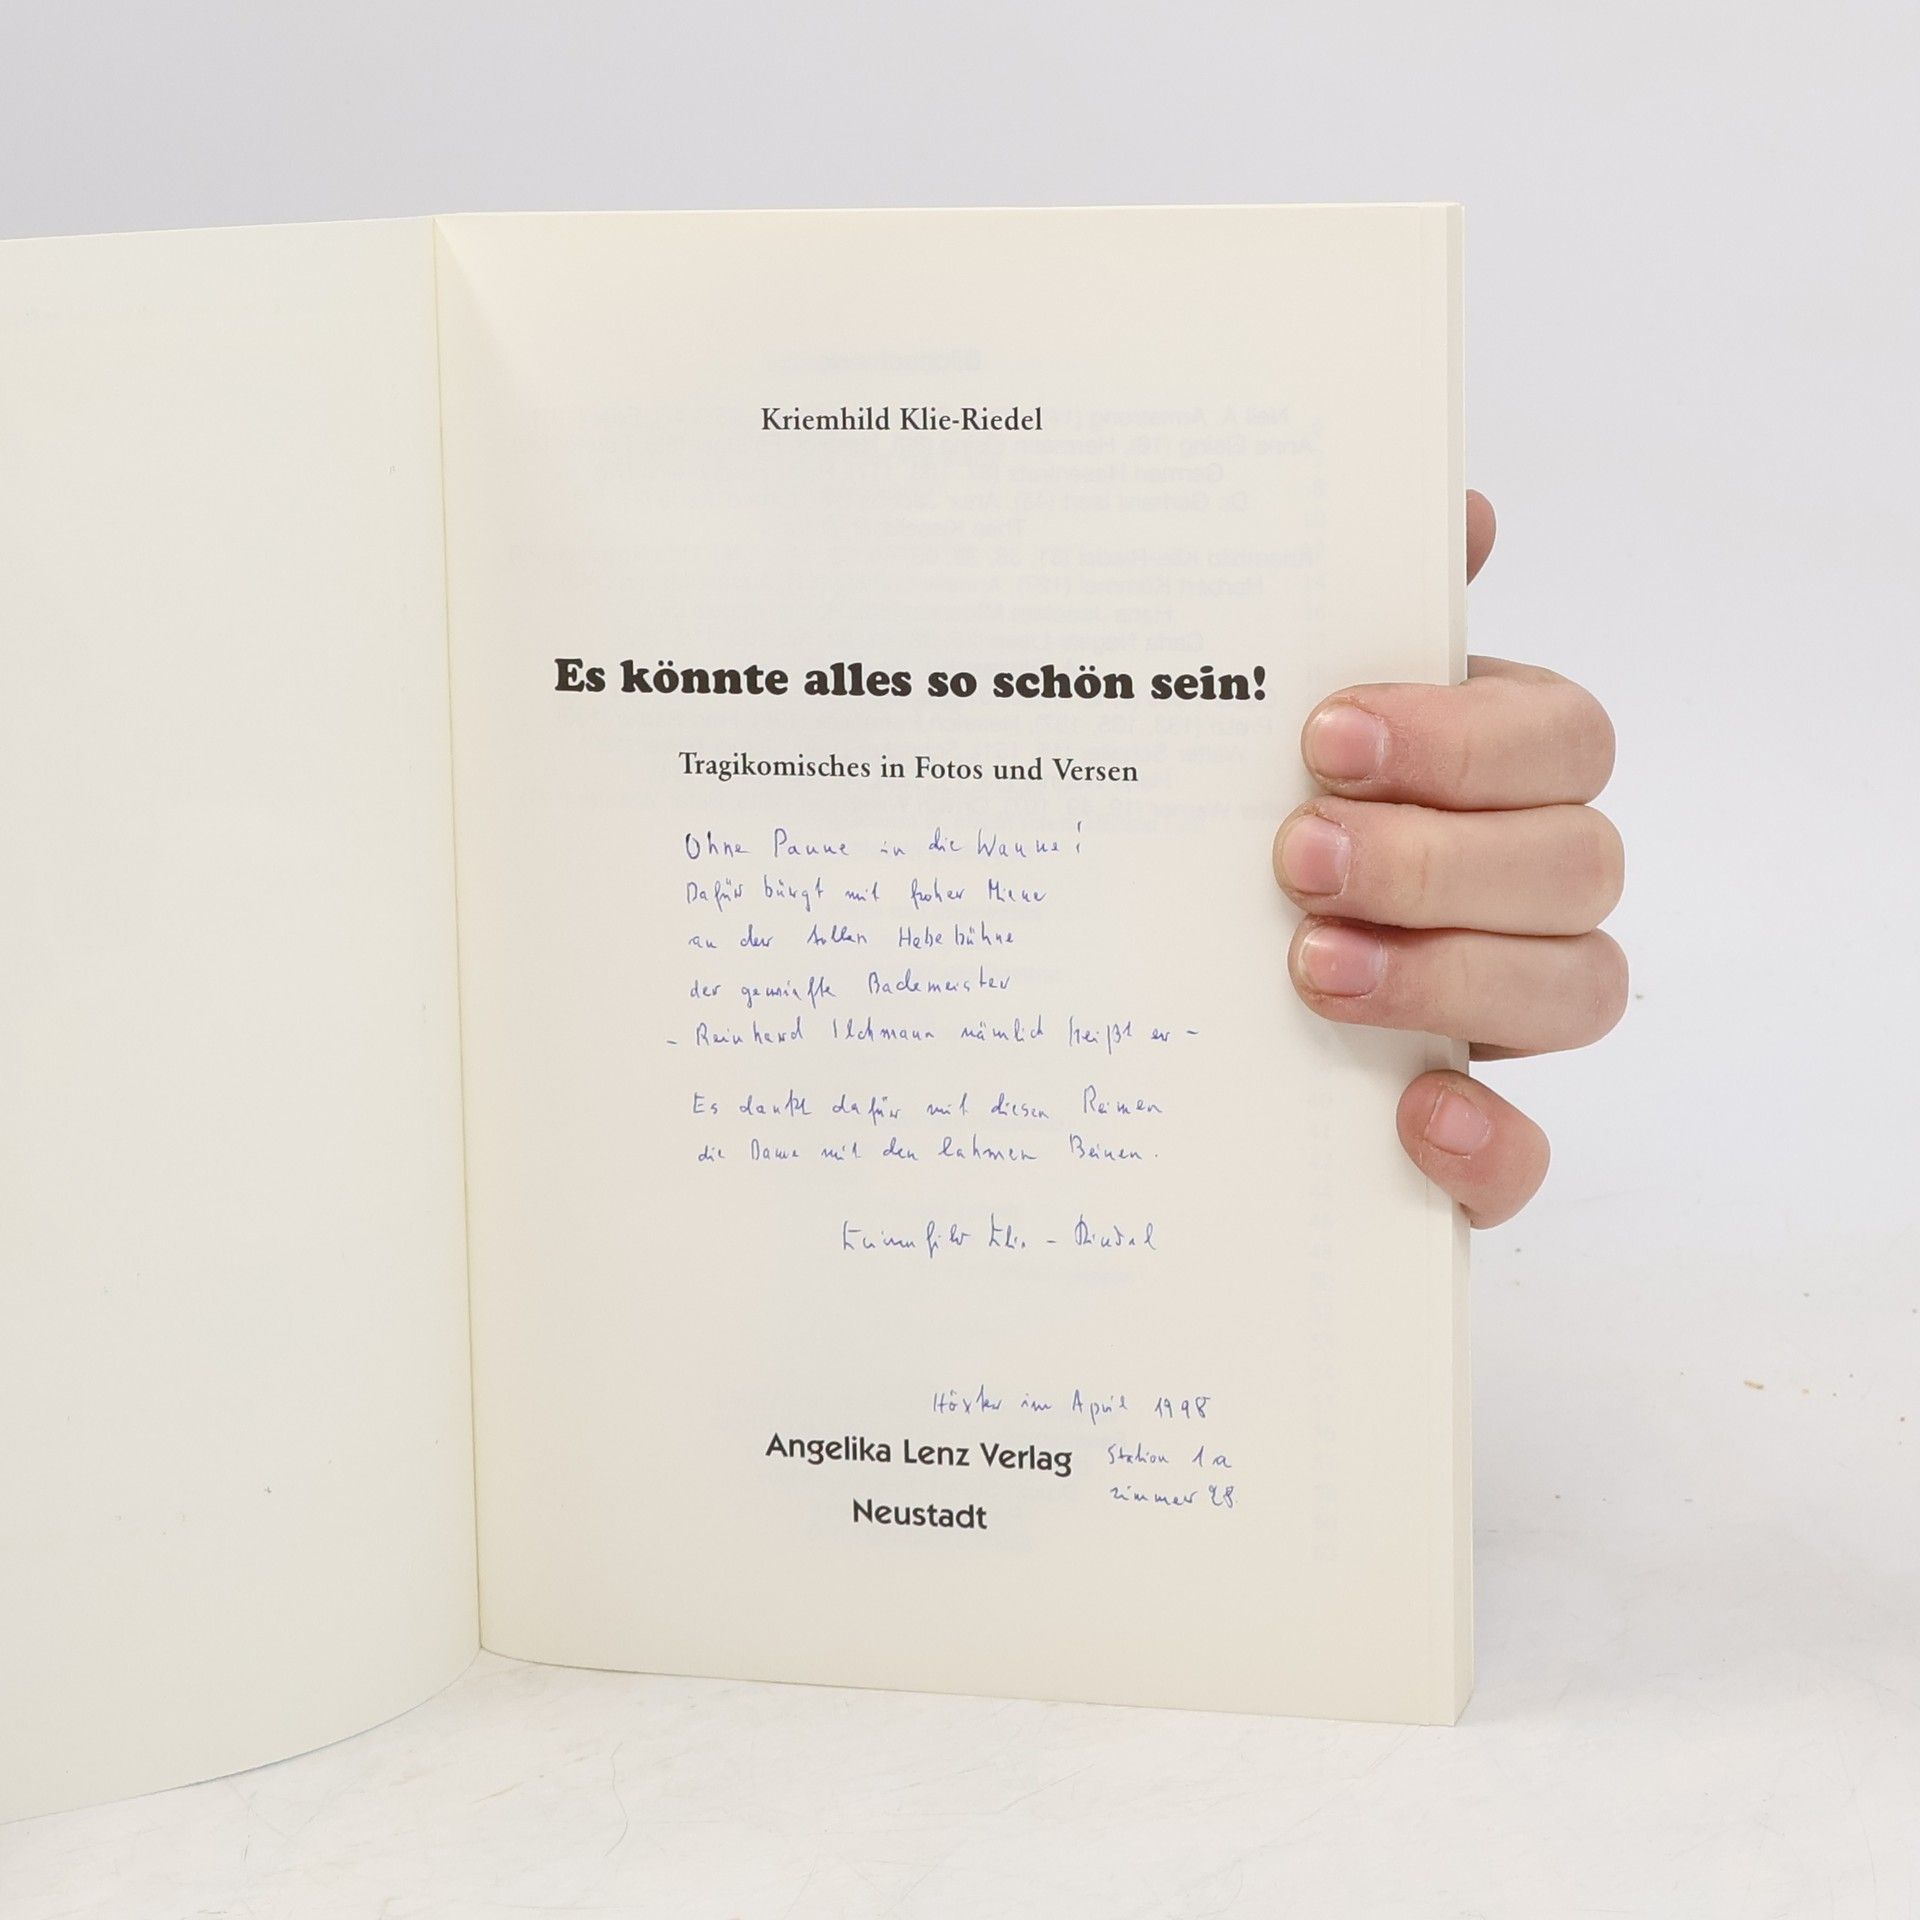 Kriemhild Klie-Riedel
Es könnte alles so schön sein!
Tragikomisches in Fotos und Versen
Ohne Panne in die Wanne!
Dafür bürgt mit froher Miene
an der tollen Hebebühne
der gewiefte Bademeister
- Reinhard Ilchmann nämlich heißt er -
Es dankt dafür mit diesen Reimen
die Dame mit den lahmen Beinen.
Kriemhild Klie-Riedel
Höxter im April 1998
Angelika Lenz Verlag
Station 1a
Zimmer 28.
Neustadt